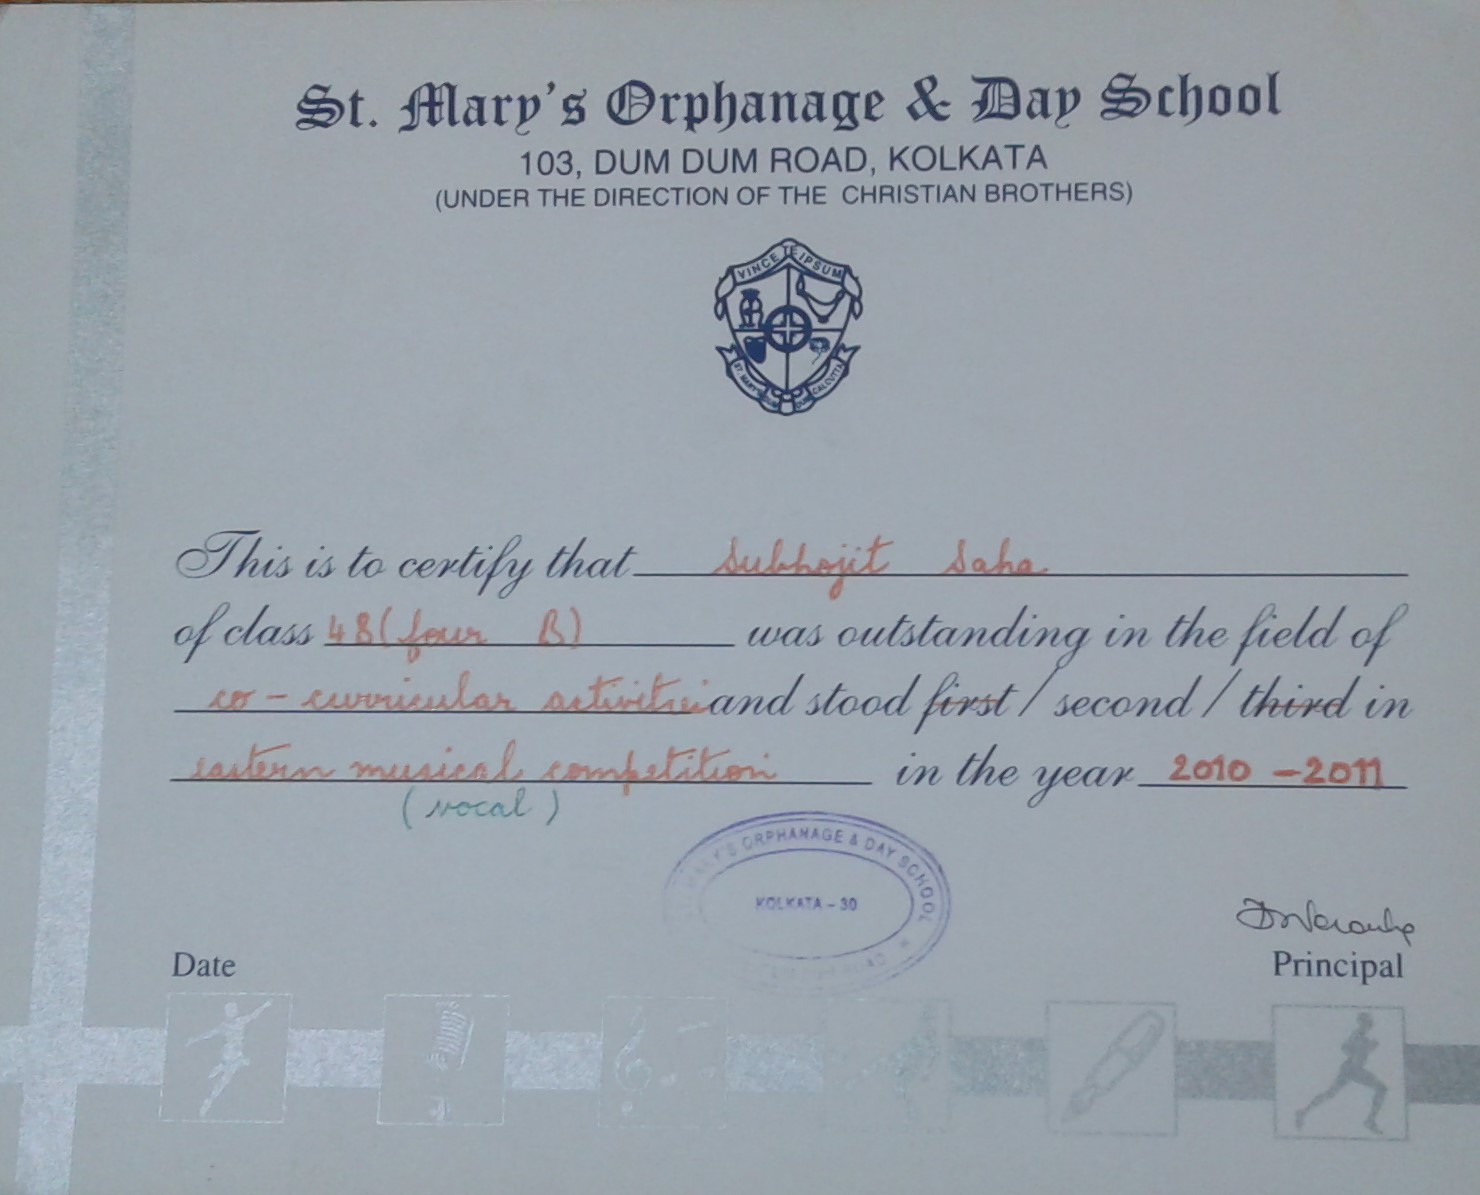 St. Mary's Orphanage & Day School
103, DUM DUM ROAD, KOLKATA
(UNDER THE DIRECTION OF THE CHRISTIAN BROTHERS)
VINCE TE IPSUM
ST. MARY'S DUM DUM CALCUTTA
This is to certify that Subhojit Saha
of class 4B (four B) was outstanding in the field of
co-curricular activities and stood first / second / third in
eastern musical competition in the year 2010 - 2011
(vocal)
MARY'S ORPHANAGE & DAY SCHOOL
KOLKATA - 30
Date
Principal